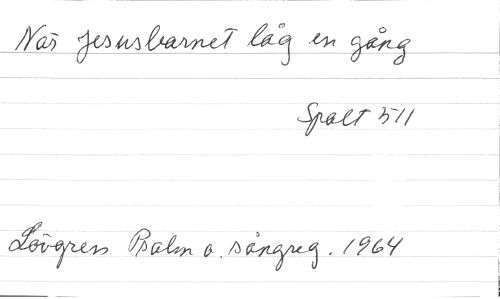 När Jesusbarnet låg en gång
Spalt 511
Lövgren Psalm o. sångreg. 1964